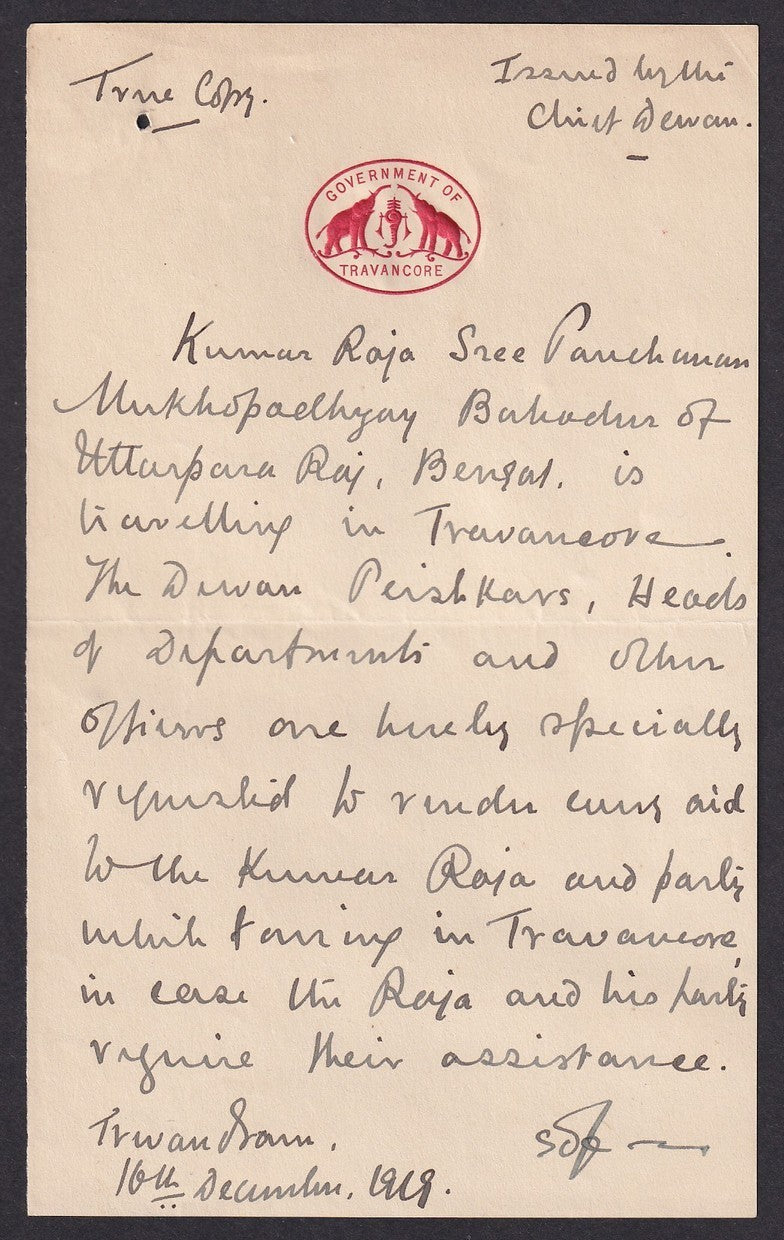 True Copy.
Issued by the
Chief Dewan.
GOVERNMENT OF
TRAVANCORE
Kumar Raja Sree Panchanan
Mukhopadhyay Bahadur of
Uttarpara Raj, Bengal, is
travelling in Travancore.
The Dewan Peishkars, Heads
of Departments and other
officers are hereby specially
requested to render every aid
to the Kumar Raja and party
while touring in Travancore,
in case the Raja and his party
require their assistance.
Trivandram,
16th December, 1919.